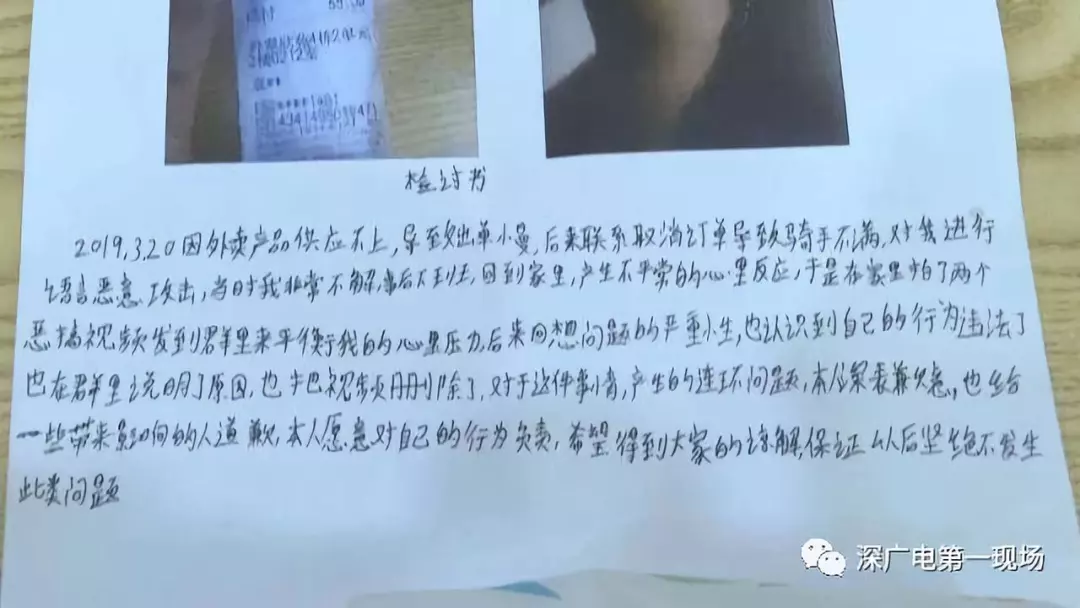 55.00
检讨书
2019,3.20因外卖产品供应不上,导致出单小曼,后来联系取消订单导致骑手不满,对我进行
语言恶意攻击,当时我非常不解,事后下班,回到家里,产生不平常的心里反应,于是在家里拍了两个
恶搞视频发到群里来平衡我的心里压力,后来回想问题的严重小生,也认识到自己的行为违法了
也在群里说明了原因,也把视频册删除了,对于这件事情,产生的连环问题,本人深表兼欠意,也给
一些带来影响向的人道歉,本人愿意对自己的行为负责,希望得到大家的谅解,保证以后坚绝不发生
此类问题
深广电第一现场